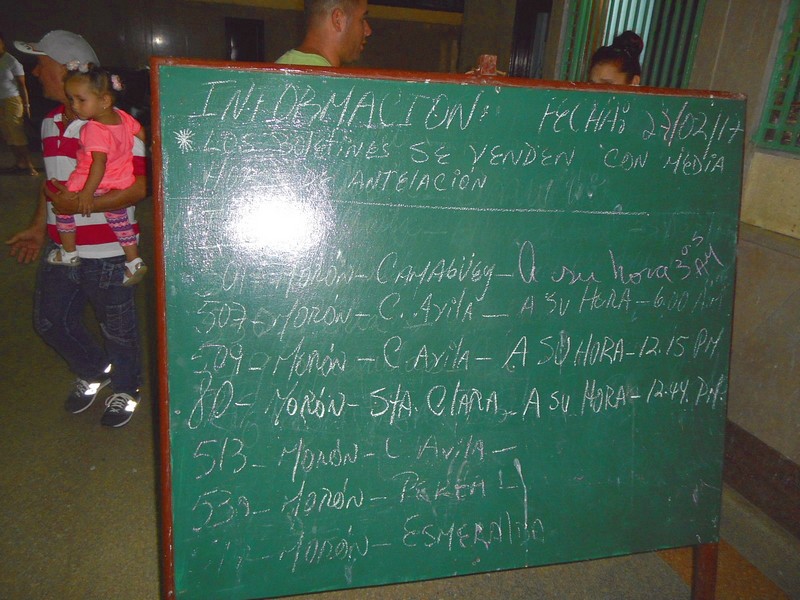 INFORMACION: FECHA: 27/02/17
* LOS BOLETINES SE VENDEN CON MEDIA
HORA DE ANTELACIÓN
501- MORÓN - CAMAGÜEY - A su hora 3.05 AM
507- MORÓN - C. AVILA - A SU HORA - 6.00 AM
509- MORÓN - C. AVILA - A SU HORA - 12.15 PM
80- MORÓN - STA. CLARA, A SU HORA - 12.44 P.M.
513- MORÓN - C AVILA -
539- MORÓN -
MORÓN - ESMERALDA